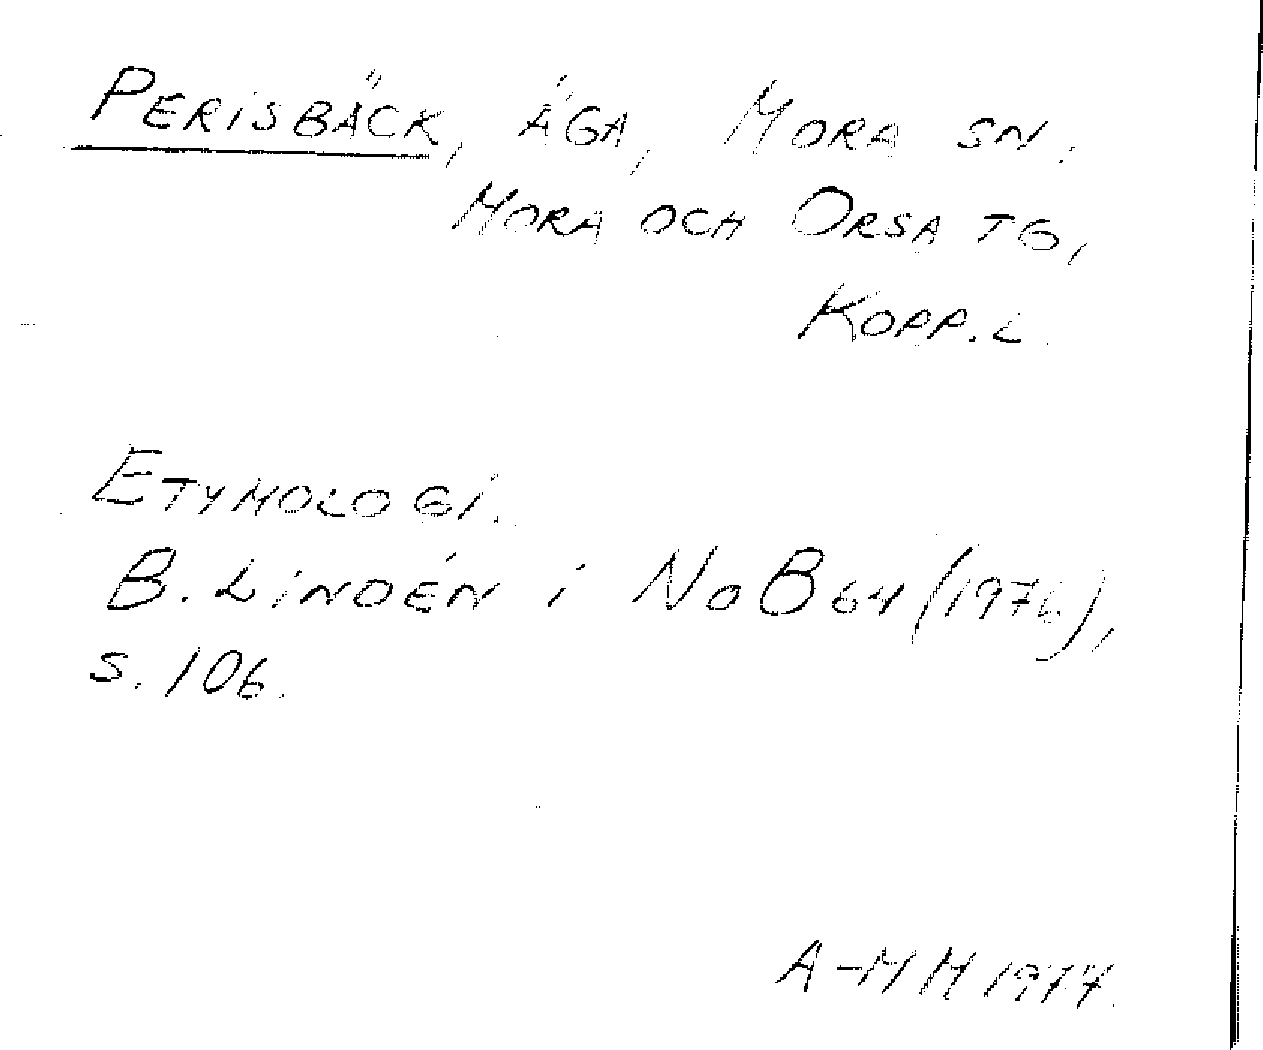 PERISBÄCK, ÄGA, MORA SN.
MORA OCH ORSA TG,
KOPP. L.
ETYMOLOGI.
B. LINDÉN I NOB 64 (1976),
S. 106.
A-MH 1977.